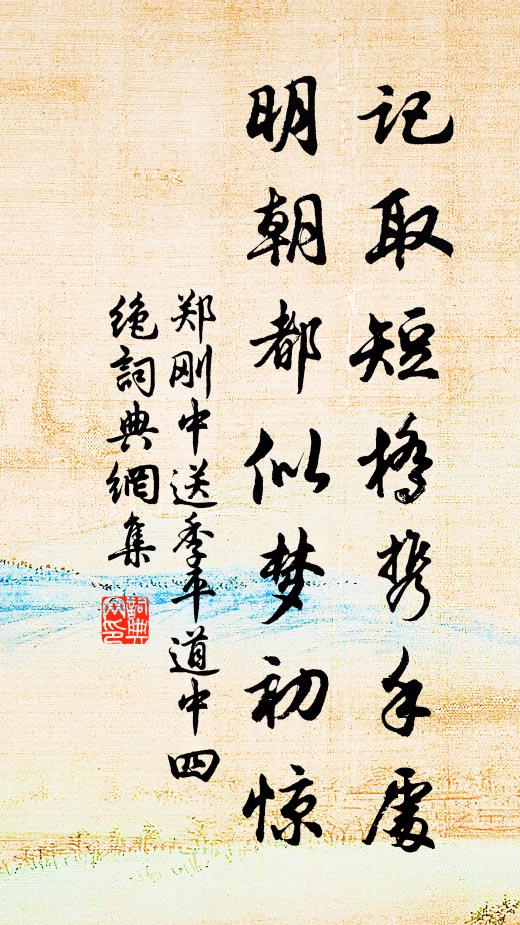 记取短桥携手處
明朝都似梦初惊
郑刚中送季平道中四
绝詞典網集
詞典